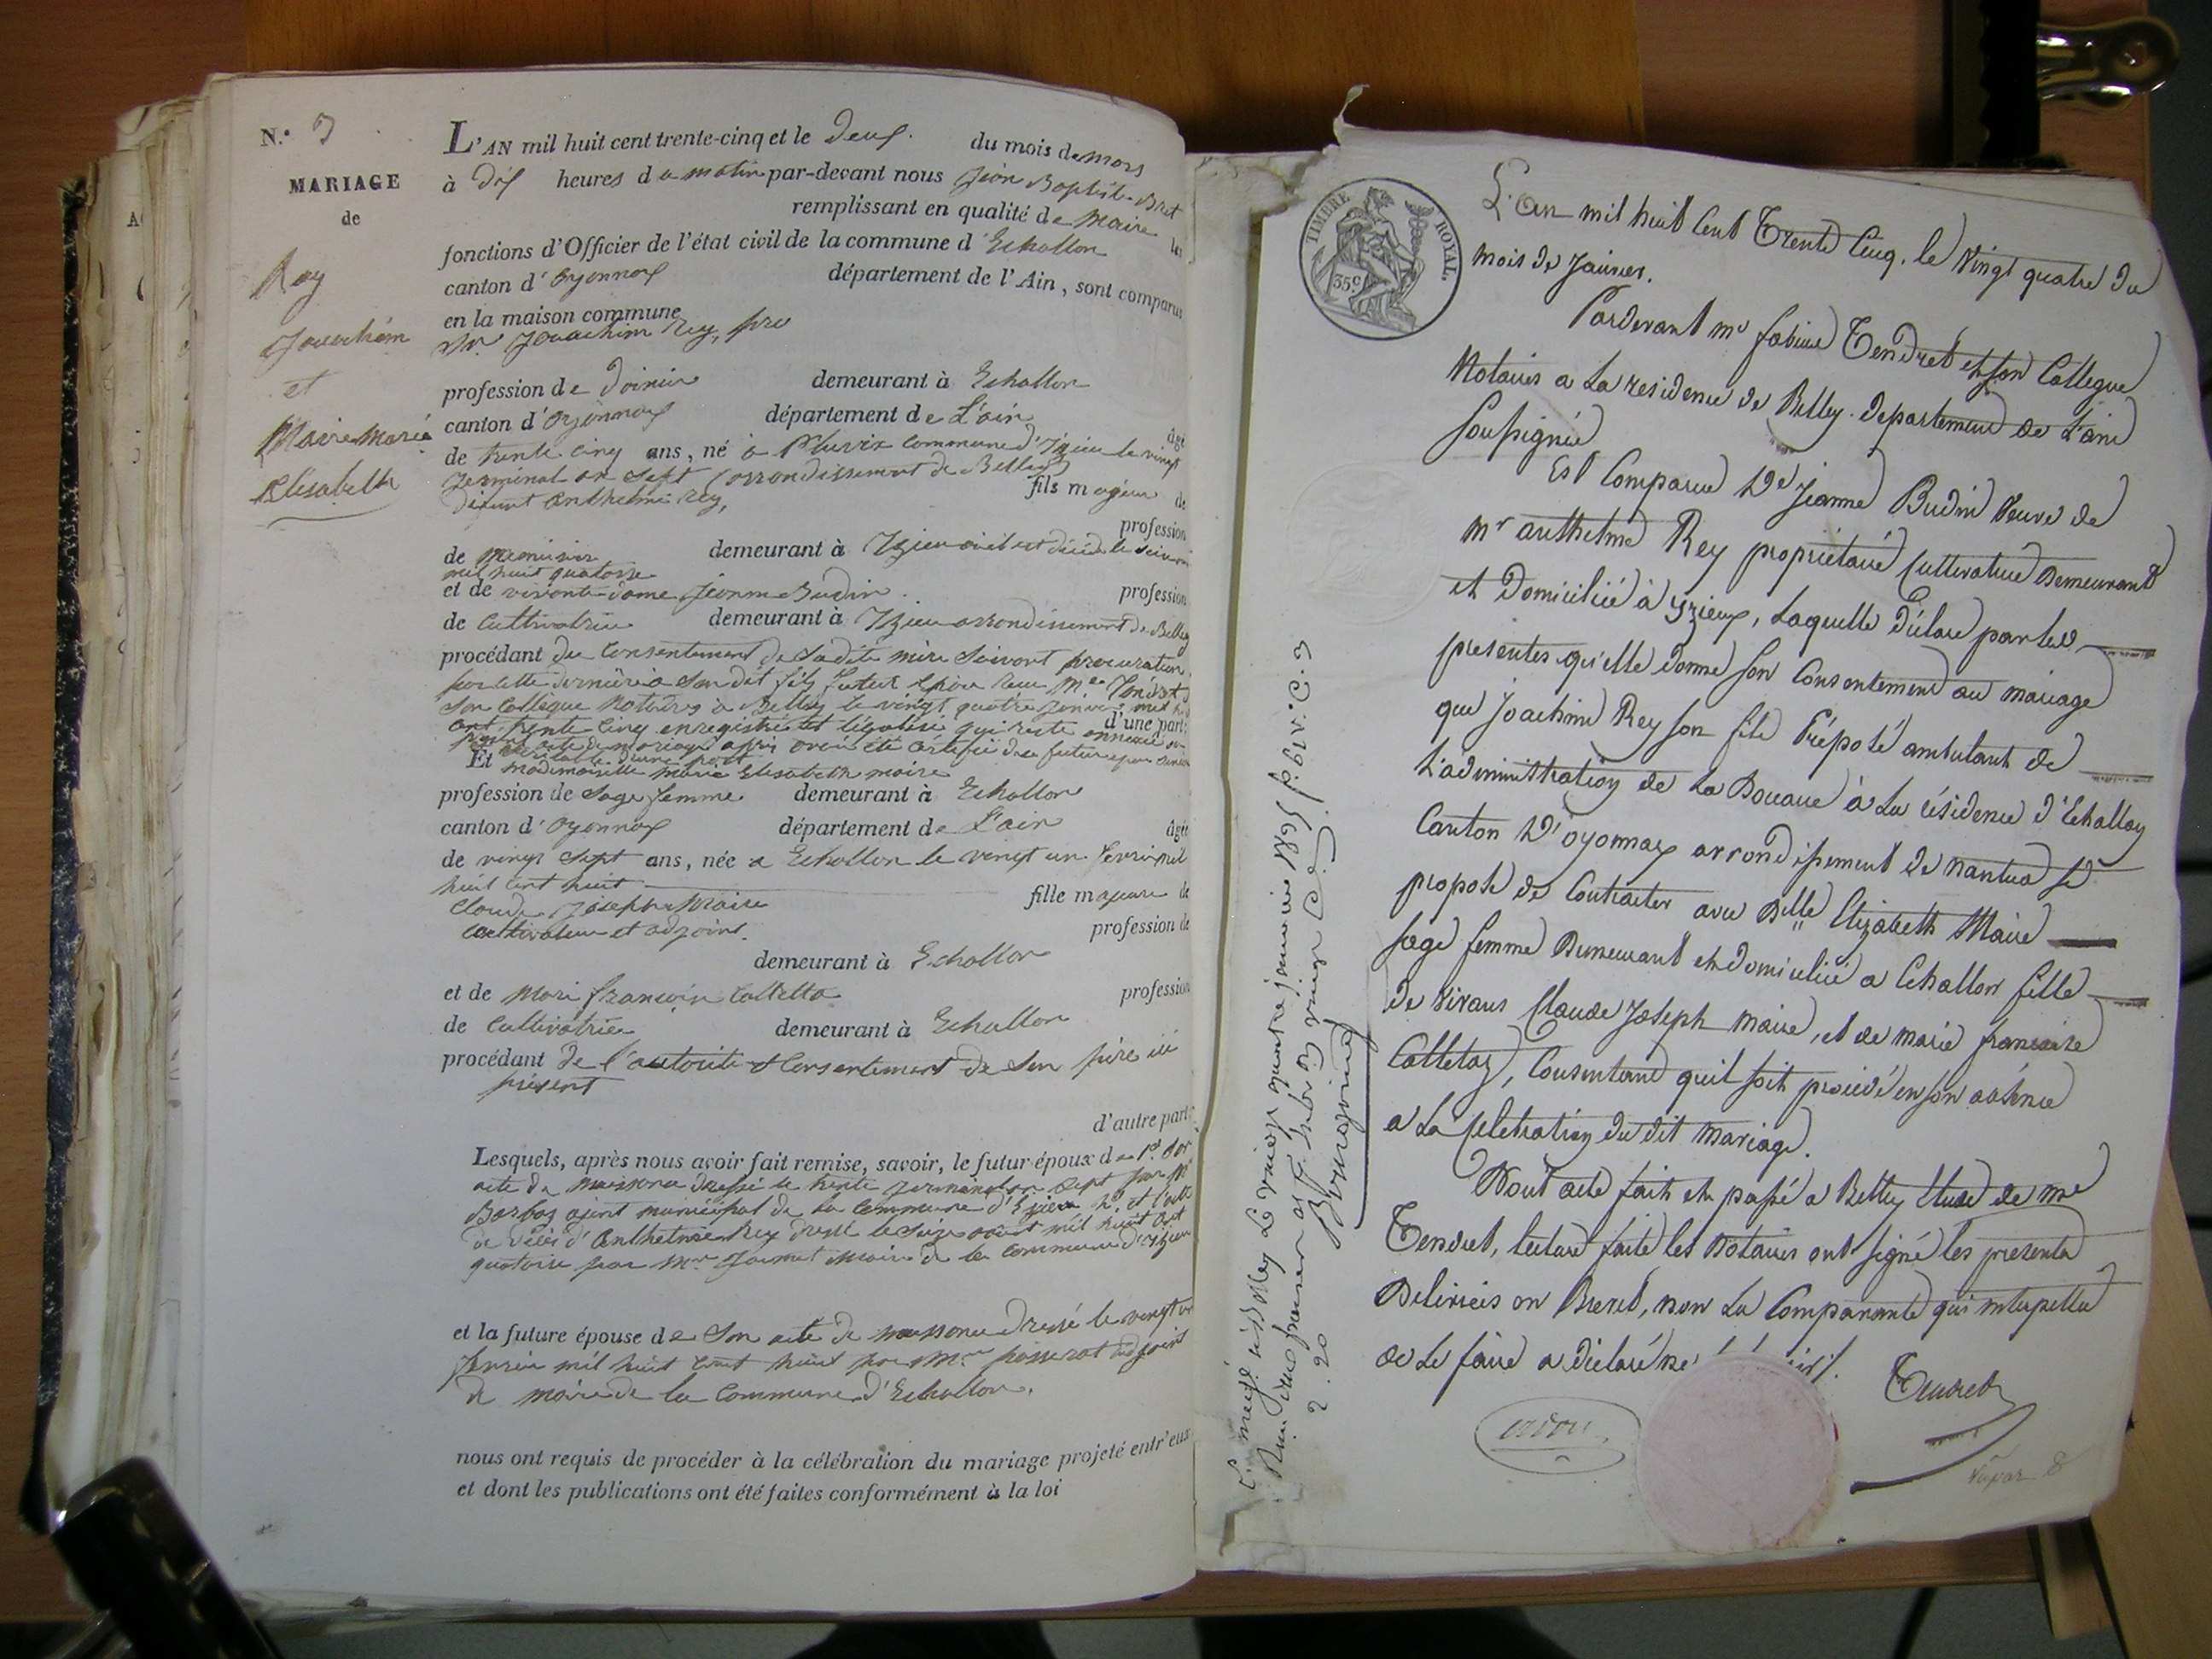 N.° 3
MARIAGE
de
Rey
Joachim
et
Maire Marie
Elisabeth
L'AN mil huit cent trente-cinq et le Deux du mois de mars
à dix heures du matin par-devant nous Jean Baptiste Bret
remplissant en qualité de Maire les
fonctions d'Officier de l'état civil de la commune d'Echallon
canton d'Oyonnax département de l'Ain, sont comparus
en la maison commune
Sr. Jouachim Rey, pre
profession de Doinier demeurant à Echallon
canton d'Oyonnax département de L'ain âgé
de trente cinq ans, né à Pluvix commune d'Izieu le vingt
germinal an sept (arrondissement de Belley)
Défunt Anthelme Rey, fils majeur de
profession
de menuisier demeurant à Izieu où il est décédé le seize
mil huit quatorze
et de vivante dame Jeanne Budin profession
de Cultivatrice demeurant à Izieu arrondissement de Belley
procédant du Consentement de Sadite mère Suivant procuration
par cette dernière à Son dit fils futur époux Me Tendret
Son Collègue Notaires à Belley le vingt quatre janvier mil huit
cent trente cinq enregistré et légalisé qui reste annexée au d'une part;
acte de mariage après avoir été certifié du futur époux
Et Mademoiselle Marie Elisabeth maire
profession de Sage femme demeurant à Echallon
canton d'Oyonnax département de L'ain âgée
de vingt Sept ans, née a Echallon le vingt un fevrier mil
huit cent huit fille majeure de
Claude Joseph Maire
Cultivateur et adjoint. profession de
demeurant à Echallon
et de Mari françoise Collettaz profession
de Cultivatrice demeurant à Echallon
procédant de l'autorité et Consentement de Son père ici
présent
d'autre part;
Lesquels, après nous avoir fait remise, savoir, le futur époux de
acte de naissance dressé le trente germinal an Sept par Mr
Barbaz ajoint municipal de la Commune d'Izieu et l'acte
de décès d'Anthelme Rey dressé le Seize août mil huit cent
quatorze par Mr Jeannet Maire de la Commune d'Izieu
et la future épouse de Son acte de naissance dressé le vingt un
fevrier mil huit cent huit par Mr passerat adjoint
de maire de la Commune d'Echallon.
nous ont requis de procéder à la célébration du mariage projeté entr'eux
et dont les publications ont été faites conformément à la loi
TIMBRE ROYAL
35c
L'an mil huit Cent Trente Cinq, le Vingt quatre du
mois de Janvier.
Pardevant me fabien Tendret et son Collegue
Notaires a La residence de Belley departement de L'ain
Soussignés
Est Comparue De Jeanne Budin Veuve de
mr anthelme Rey propriétaire Cultivatrice Demeurant
et Domiciliée à yzieux, Laquelle déclare par les
presentes qu'elle donne son Consentement au mariage
que Joachim Rey son fils Préposé ambulant de
L'administration de La Douane à La résidence d'Echallon
Canton D'oyonnax arrondissement de Nantua se
propose de Contracter avec Dlle Elizabeth Maire
sage femme Demeurant et domiciliée a Echallon fille
de Vivans Claude Joseph maire, et de marie françoise
Colletaz, Consentant quil soit procédé en son absence
a La Celebration du dit mariage.
Dont acte fait et passé a Belley Etude de me
Tendret, lecture faite les Notaires ont signé les presentes
Delivrées en Brevet, non La Comparante qui interpellée
de Le faire a déclaré ne
Tendret